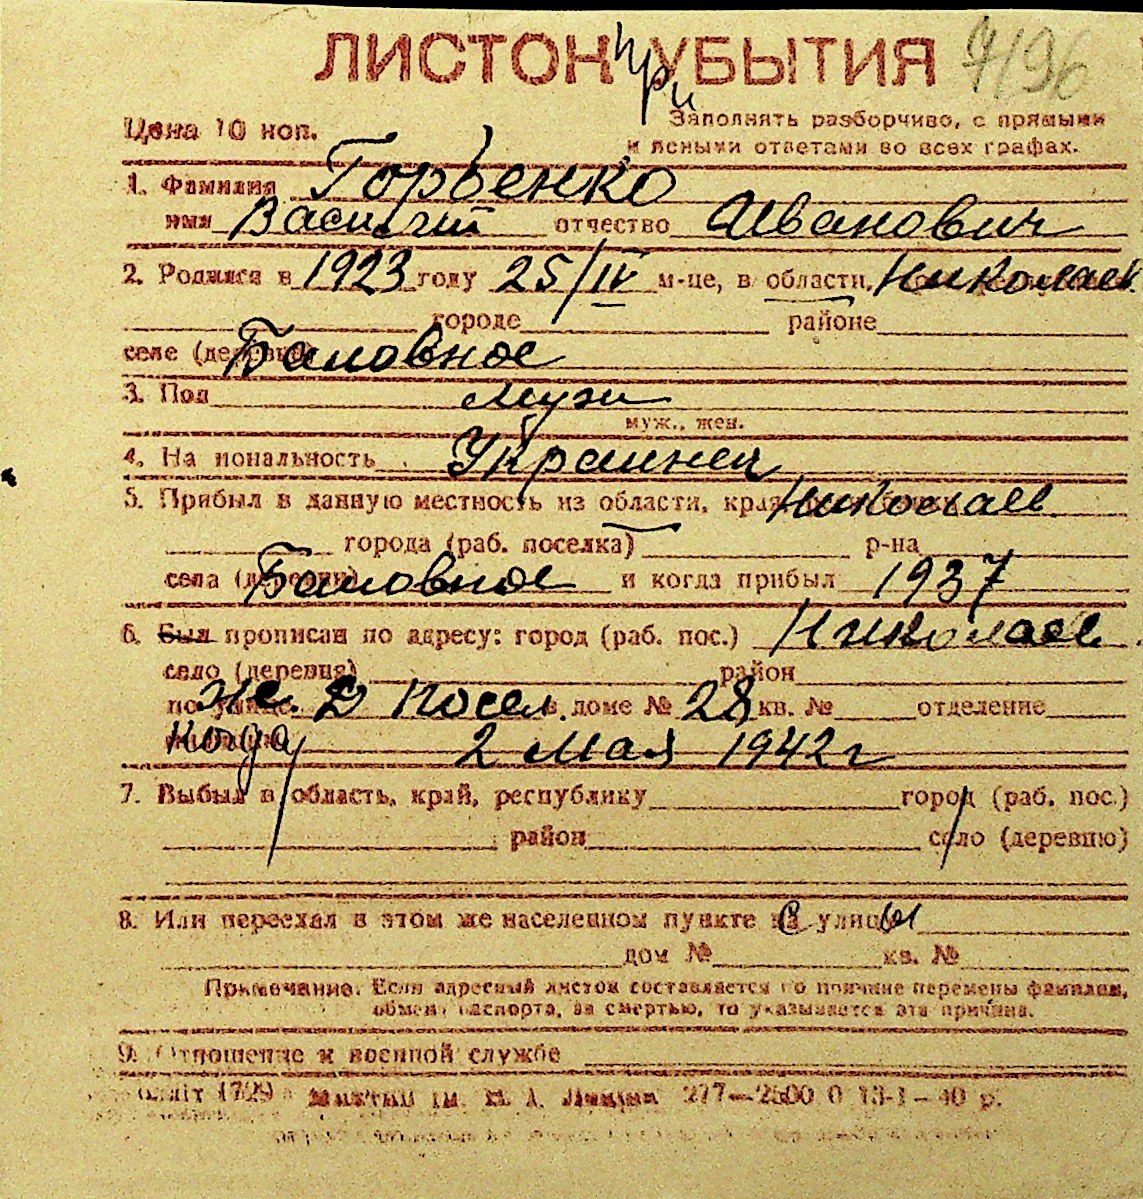 ЛИСТОК УБЫТИЯ
при
7196
Цена 10 коп.
Заполнять разборчиво, с прямыми
и ясными ответами во всех графах.
1. Фамилия Горбенко
имя Василий отчество Иванович
2. Родился в 1923 году 25/IV м-це, в области, Николаев.
городе районе
селе (деревне) Баловное
3. Пол муж
муж., жен.
4. На иональность Украинец
5. Прибыл в данную местность из области, края, Николаев.
города (раб. поселка) р-на
села (деревни) Баловное и когда прибыл 1937
6. Был прописан по адресу: город (раб. пос.) Николаев.
село (деревня) район
по улице жс. Д посел. в доме № 28 кв. № отделение
куда 2 мая 1942 г
7. Выбыл в область, край, республику город (раб. пос.)
район село (деревню)
8. Или переехал в этом же населенном пункте с улицы
дом № кв. №
Примечание. Если адресный листок составляется по причине перемены фамилии,
обмена паспорта, за смертью, то указывается эта причина.
9. Отношение к военной службе
1729 277—2500 0 13-1-40 р.